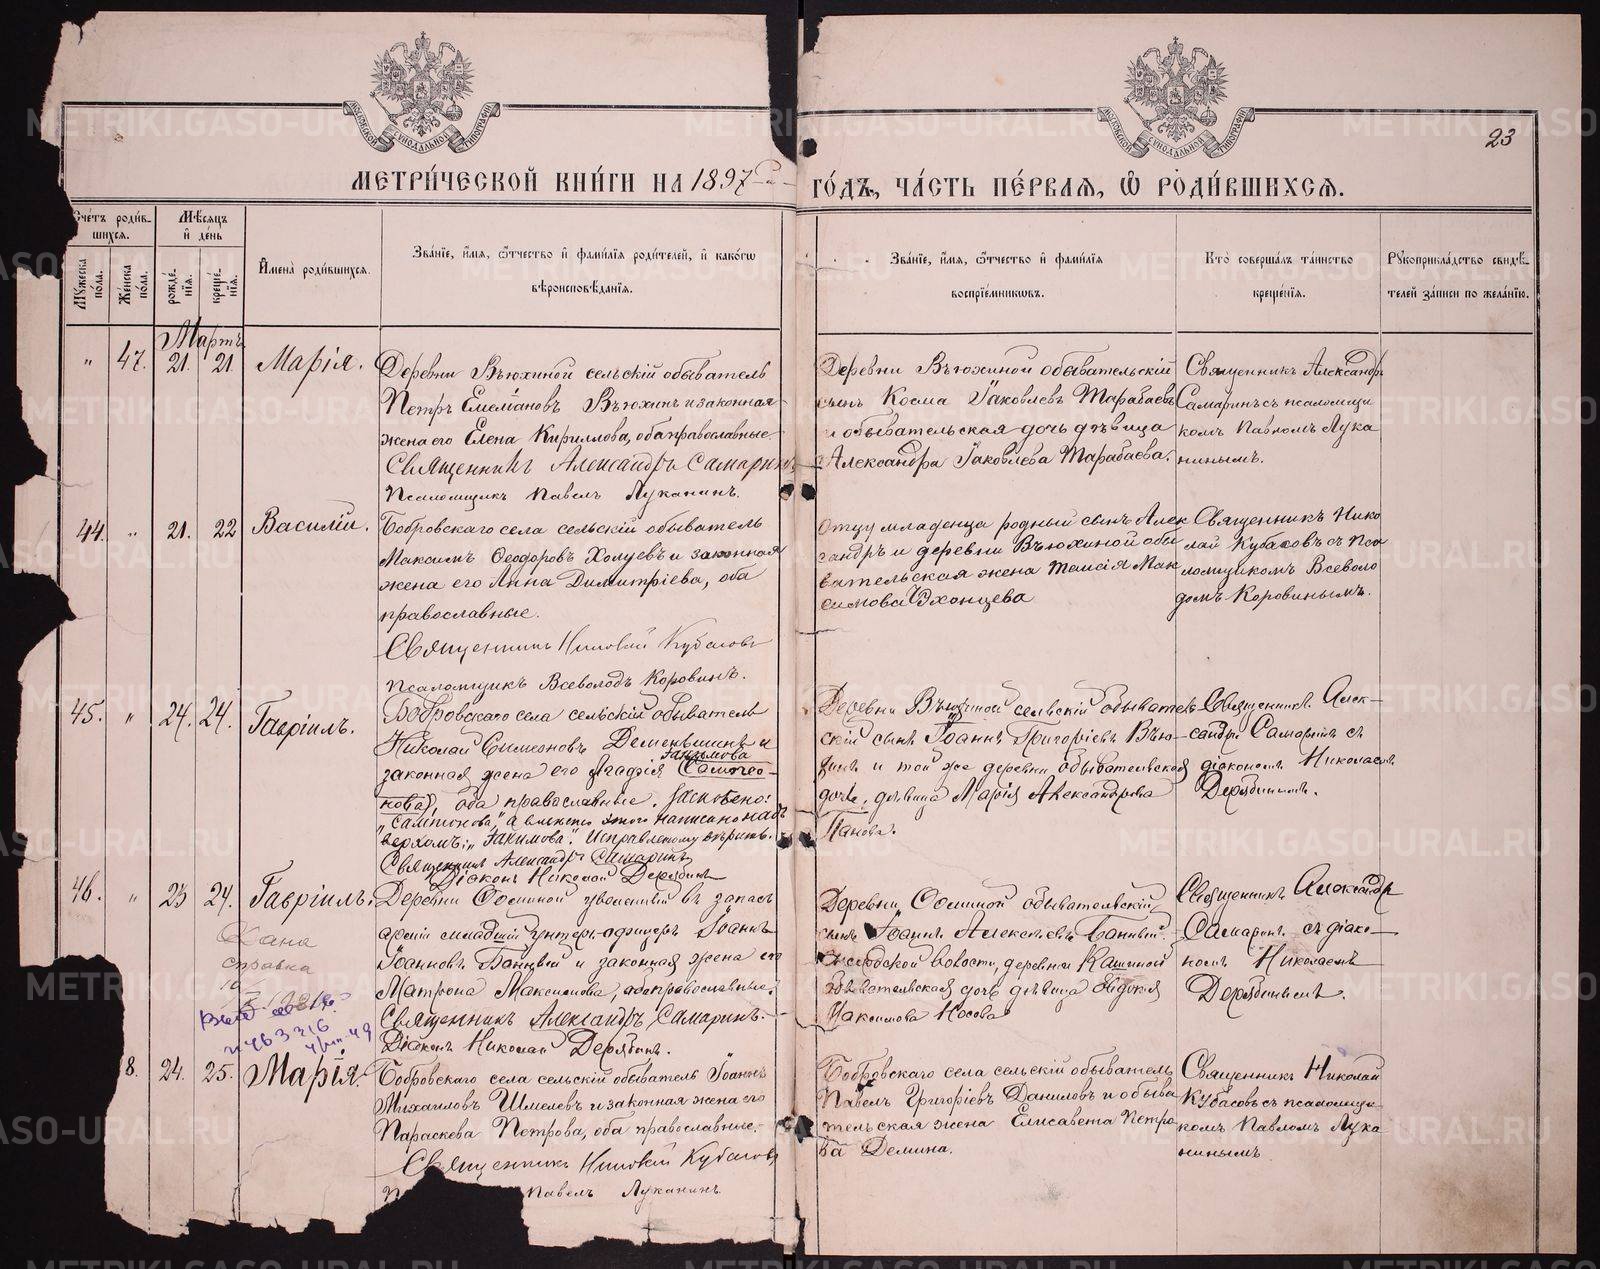 МЕТРИ́ЧЕСКОЙ КНИ́ГИ НА 1897
ГО́ДЪ, ЧА́СТЬ ПЕ́РВАѦ, Ѡ РОДИ́ВШИХСѦ.
23
Счётъ роди́в-
шихсѧ.
Мѣ́сѧцъ
и҆ де́нь
И҆мена̀ роди́вшихсѧ.
Зва́нїе, и҆́мѧ, ѻ҆́тчество и҆ фами́лїѧ роди́телей, и҆ како́гѡ
вѣроисповѣ́данїѧ.
Зва́нїе, и҆́мѧ, ѻ҆́тчество и҆ фами́лїѧ
воспрїе́мникѡвъ.
Кто̀ соверша́лъ та́инство
креще́нїѧ.
Рꙋкоприкла́дство свидѣ́-
телей за́писи по жела́нїю.
Мꙋ́жеска
по́ла.
Же́нска
по́ла.
рожде́-
нїѧ.
креще́-
нїѧ.
Мартъ
" 47. 21. 21. Марія.
Деревни Вьюхиной сельскій обыватель
Петръ Емеліановъ Вьюхинъ и законная
жена его Елена Кириллова, оба православные.
Священникъ Александръ Самаринъ
Псаломщикъ Павелъ Луканинъ.
Деревни Вьюхиной обывательскій
сынъ Косма Іаковлевъ Тарабаевъ
и обывательская дочь дѣвица
Александра Іаковлева Тарабаева.
Священникъ Александръ
Самаринъ съ псаломщи
комъ Павломъ Лука
нинымъ.
44. " 21. 22 Василій.
Бобровскаго села сельскій обыватель
Максимъ Ѳеодоровъ Холуевъ и законная
жена его Анна Димитріева, оба
православные.
Священникъ Николай Кубасовъ
Псаломщикъ Всеволодъ Коровинъ.
Отцу младенца родный сынъ Алек
сандръ и деревни Вьюхиной обы
вательская жена Таисія Мак
симова
Священникъ Нико
лай Кубасовъ съ Пса
ломщикомъ Всеволо
домъ Коровинымъ.
45. " 24. 24. Гавріилъ.
Бобровскаго села сельскій обыватель
Николай Симеоновъ Деменьшинъ и
Іакимова
законная жена его Агафія (Сампсо-
нова), оба православные. Заскоблено:
"Сампсонова", а вмѣсто этого написано над
верхомъ: "Іакимова". Исправленому вѣрить.
Священникъ Александръ Самаринъ
Діаконъ Николай Дерябинъ
Деревни Вьюхиной сельскій обыватель
скій сынъ Іоаннъ Григоріевъ Вью-
хинъ и той же деревни обывательская
дочь, дѣвица Марія Александрова
Панова.
Священникъ Алек-
сандръ Самаринъ съ
діакономъ Николаемъ
Дерябинымъ.
46. " 23 24. Гавріилъ.
Деревни Осиной уволенный въ запасъ
арміи младшій унтеръ-офицеръ Іоаннъ
Іоанновъ Банныхъ и законная жена его
Матрона Максимова, оба православные.
Священникъ Александръ Самаринъ.
Діаконъ Николай Дерябинъ.
Деревни Осиной обывательскій
сынъ Іоаннъ Алексѣевъ Банныхъ
волости, деревни Кашиной
обывательская дочь дѣвица Евдокія
Максимова Носова
Священникъ Александръ
Самаринъ съ діако-
номъ Николаемъ
Дерябинымъ.
Дана
справка
8. 24. 25. Марія.
Бобровскаго села сельскій обыватель Іоаннъ
Михаиловъ Шмелевъ и законная жена его
Параскева Петрова, оба православные.
Священникъ Николай Кубасовъ
Павелъ Луканинъ.
Бобровскаго села сельскій обыватель
Павелъ Григоріевъ Даниловъ и обыва
тельская жена Елисавета Петро
ва Демина.
Священникъ Николай
Кубасовъ съ псаломщи-
комъ Павломъ Лука
нинымъ
METRIKI.GASO-URAL.RU